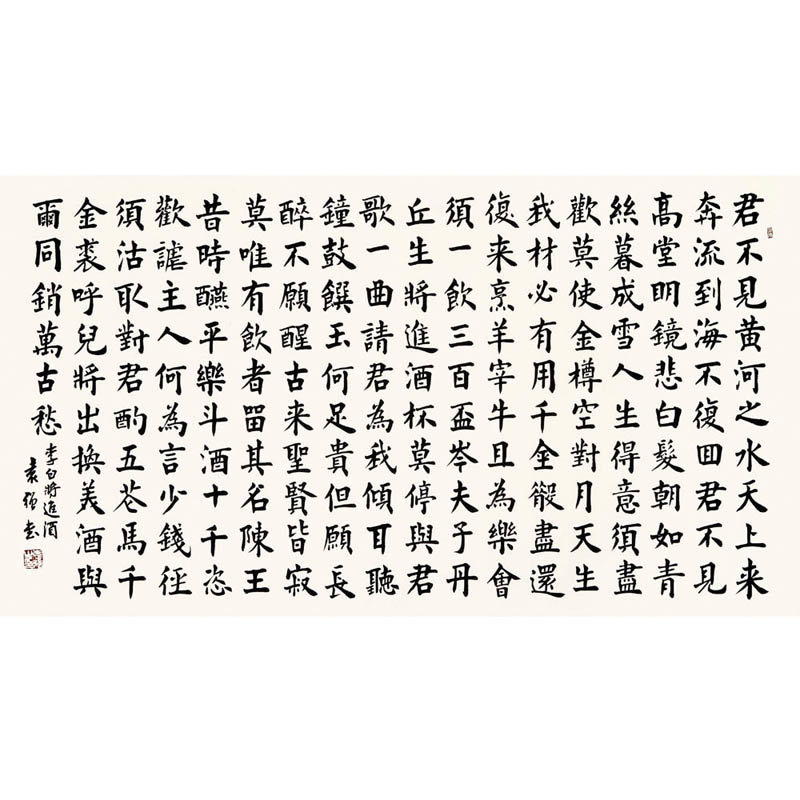 君不見黄河之水天上来
奔流到海不復回君不見
高堂明鏡悲白髮朝如青
絲暮成雪人生得意須盡
歡莫使金樽空對月天生
我材必有用千金散盡還
復来烹羊宰牛且為樂會
須一飲三百盃岑夫子丹
丘生將進酒杯莫停與君
歌一曲請君為我傾耳聽
鐘鼓饌玉何足貴但願長
醉不願醒古来聖賢皆寂
莫唯有飲者留其名陳王
昔時醼平樂斗酒十千恣
歡謔主人何為言少錢徑
須沽取對君酌五花馬千
金裘呼兒將出換美酒與
爾同銷萬古愁
李白將進酒
袁強書